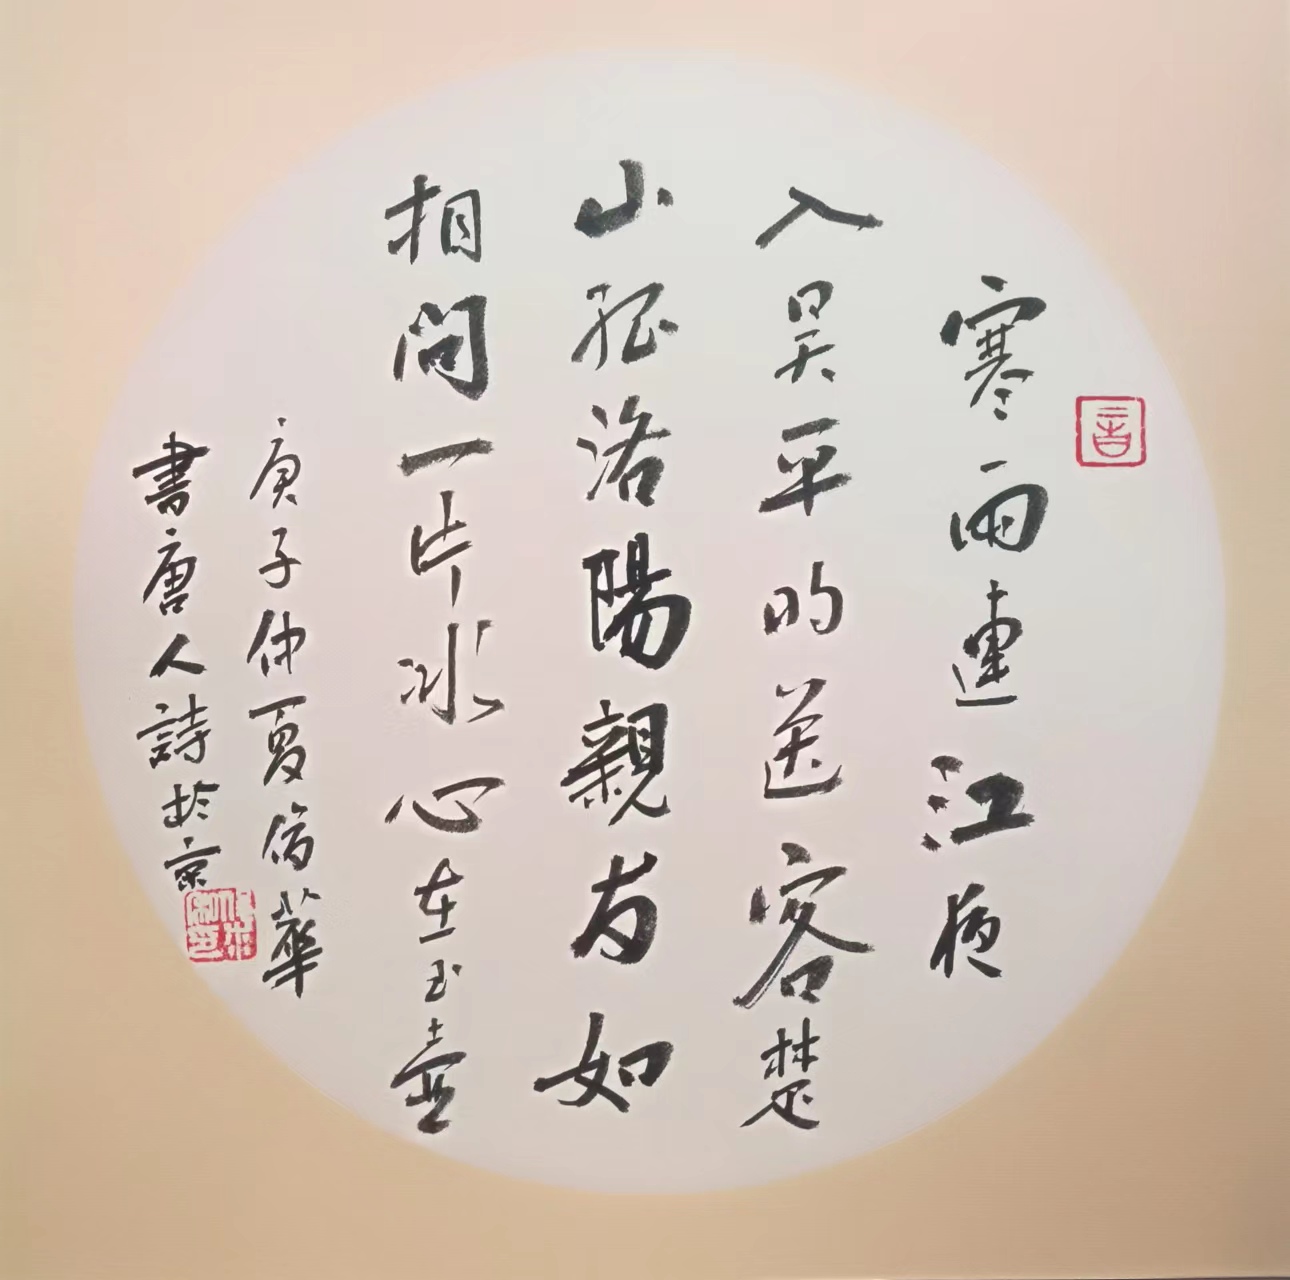 寒雨連江夜
入吴平明送客楚
山孤洛陽親友如
相問一片冰心在玉壺
庚子仲夏
書唐人詩於京